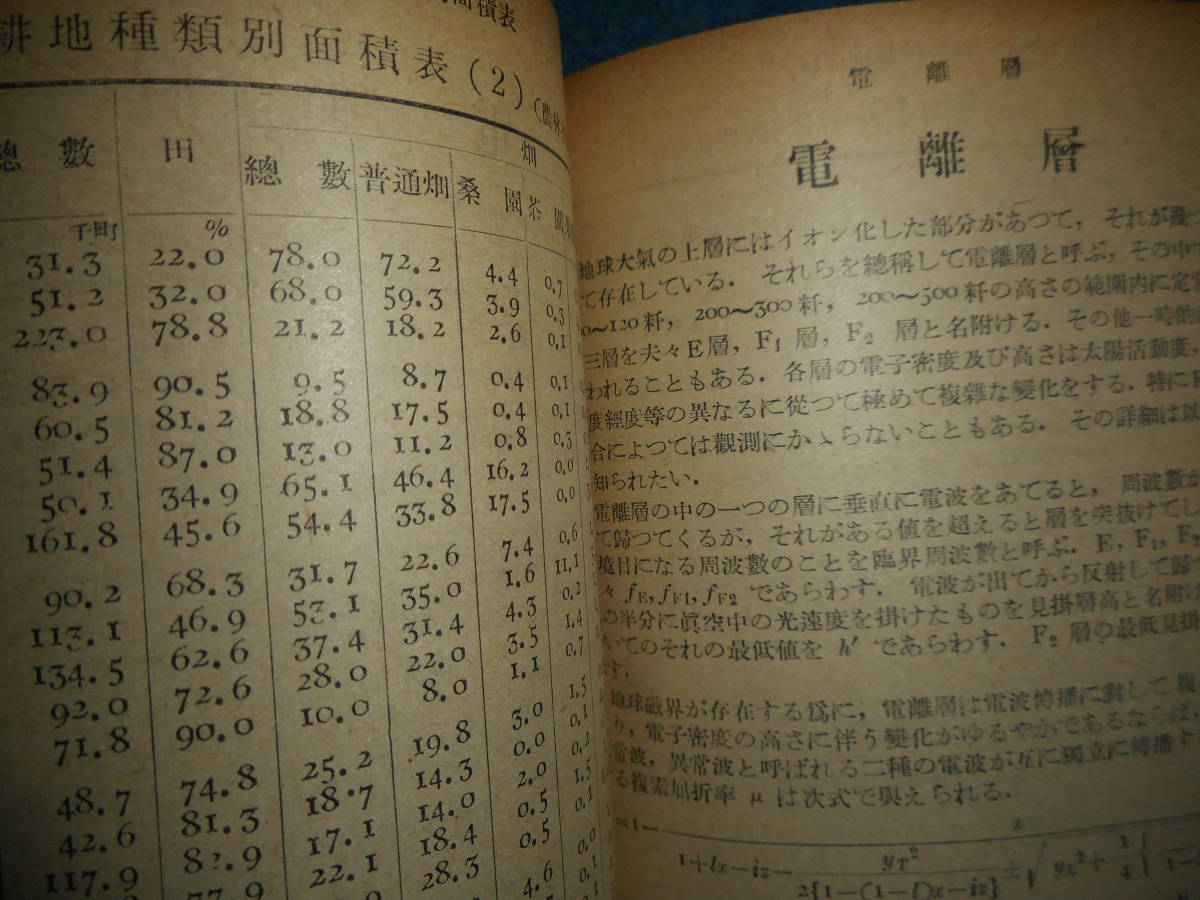 間積表
耕地種類別面積表 (2) (農林
總數 田 畑
總數 普通畑 桑園 茶園
千町 %
31.3 22.0 78.0 72.2 4.4 0.7
51.2 32.0 68.0 59.3 3.9 0.3
223.0 78.8 21.2 18.2 2.6 0.1
83.9 90.5 9.5 8.7 0.4 0.1
60.5 81.2 18.8 17.5 0.4 0.1
51.4 87.0 13.0 11.2 0.8 0.3
50.1 34.9 65.1 46.4 16.2 0.0
161.8 45.6 54.4 33.8 17.5 0.0
90.2 68.3 31.7 22.6 7.4 0.6
113.1 46.9 53.1 35.0 1.6 11.1
134.5 62.6 37.4 31.4 4.3 0.2
92.0 72.6 28.0 22.0 3.5 1.4
71.8 90.0 10.0 8.0 1.1 0.7
48.7 74.8 25.2 19.8 3.0 1.5
42.6 81.3 18.7 14.3 0.0 0.1
117.9 82.9 17.1 14.0 2.0 0.2
77.9 22.1 18.4 0.5 1.5
28.3 0.5 0.1
4.6 0.0
0.1
電離層
電離層
地球大氣の上層にはイオン化した部分があつて，それが幾つ
て存在している．それらを總稱して電離層と呼ぶ，その中の
0～120粁，200～300粁，200～500粁の高さの範囲内に定常
三層を夫々E層，F₁層，F₂ 層と名附ける．その他一時的
われることもある．各層の電子密度及び高さは太陽活動度，
度經度等の異なるに從つて極めて複雜な變化をする．特にF
合によつては觀測にかゝらないこともある．その詳細は以
知られたい．
電離層の中の一つの層に垂直に電波をあてると，周波數が
て歸つてくるが，それがある値を超えると層を突抜けてし
境目になる周波數のことを臨界周波數と呼ぶ．E，F₁，F₂
々 fE, fF1, fF2 であらわす．電波が出てから反射して歸
の半分に眞空中の光速度を掛けたものを見掛層高と名附け
いてのそれの最低値を h′ であらわす．F₂ 層の最低見掛
す．
地球磁界が存在する爲に，電離層は電波傳播に對して複
り，電子密度の高さに伴う變化がゆるやかであるならば，
常波，異常波と呼ばれる二種の電波が互に獨立に傳播す
る複素屈折率 μ は次式で與えられる．
=1−
x
1+lx−iz−